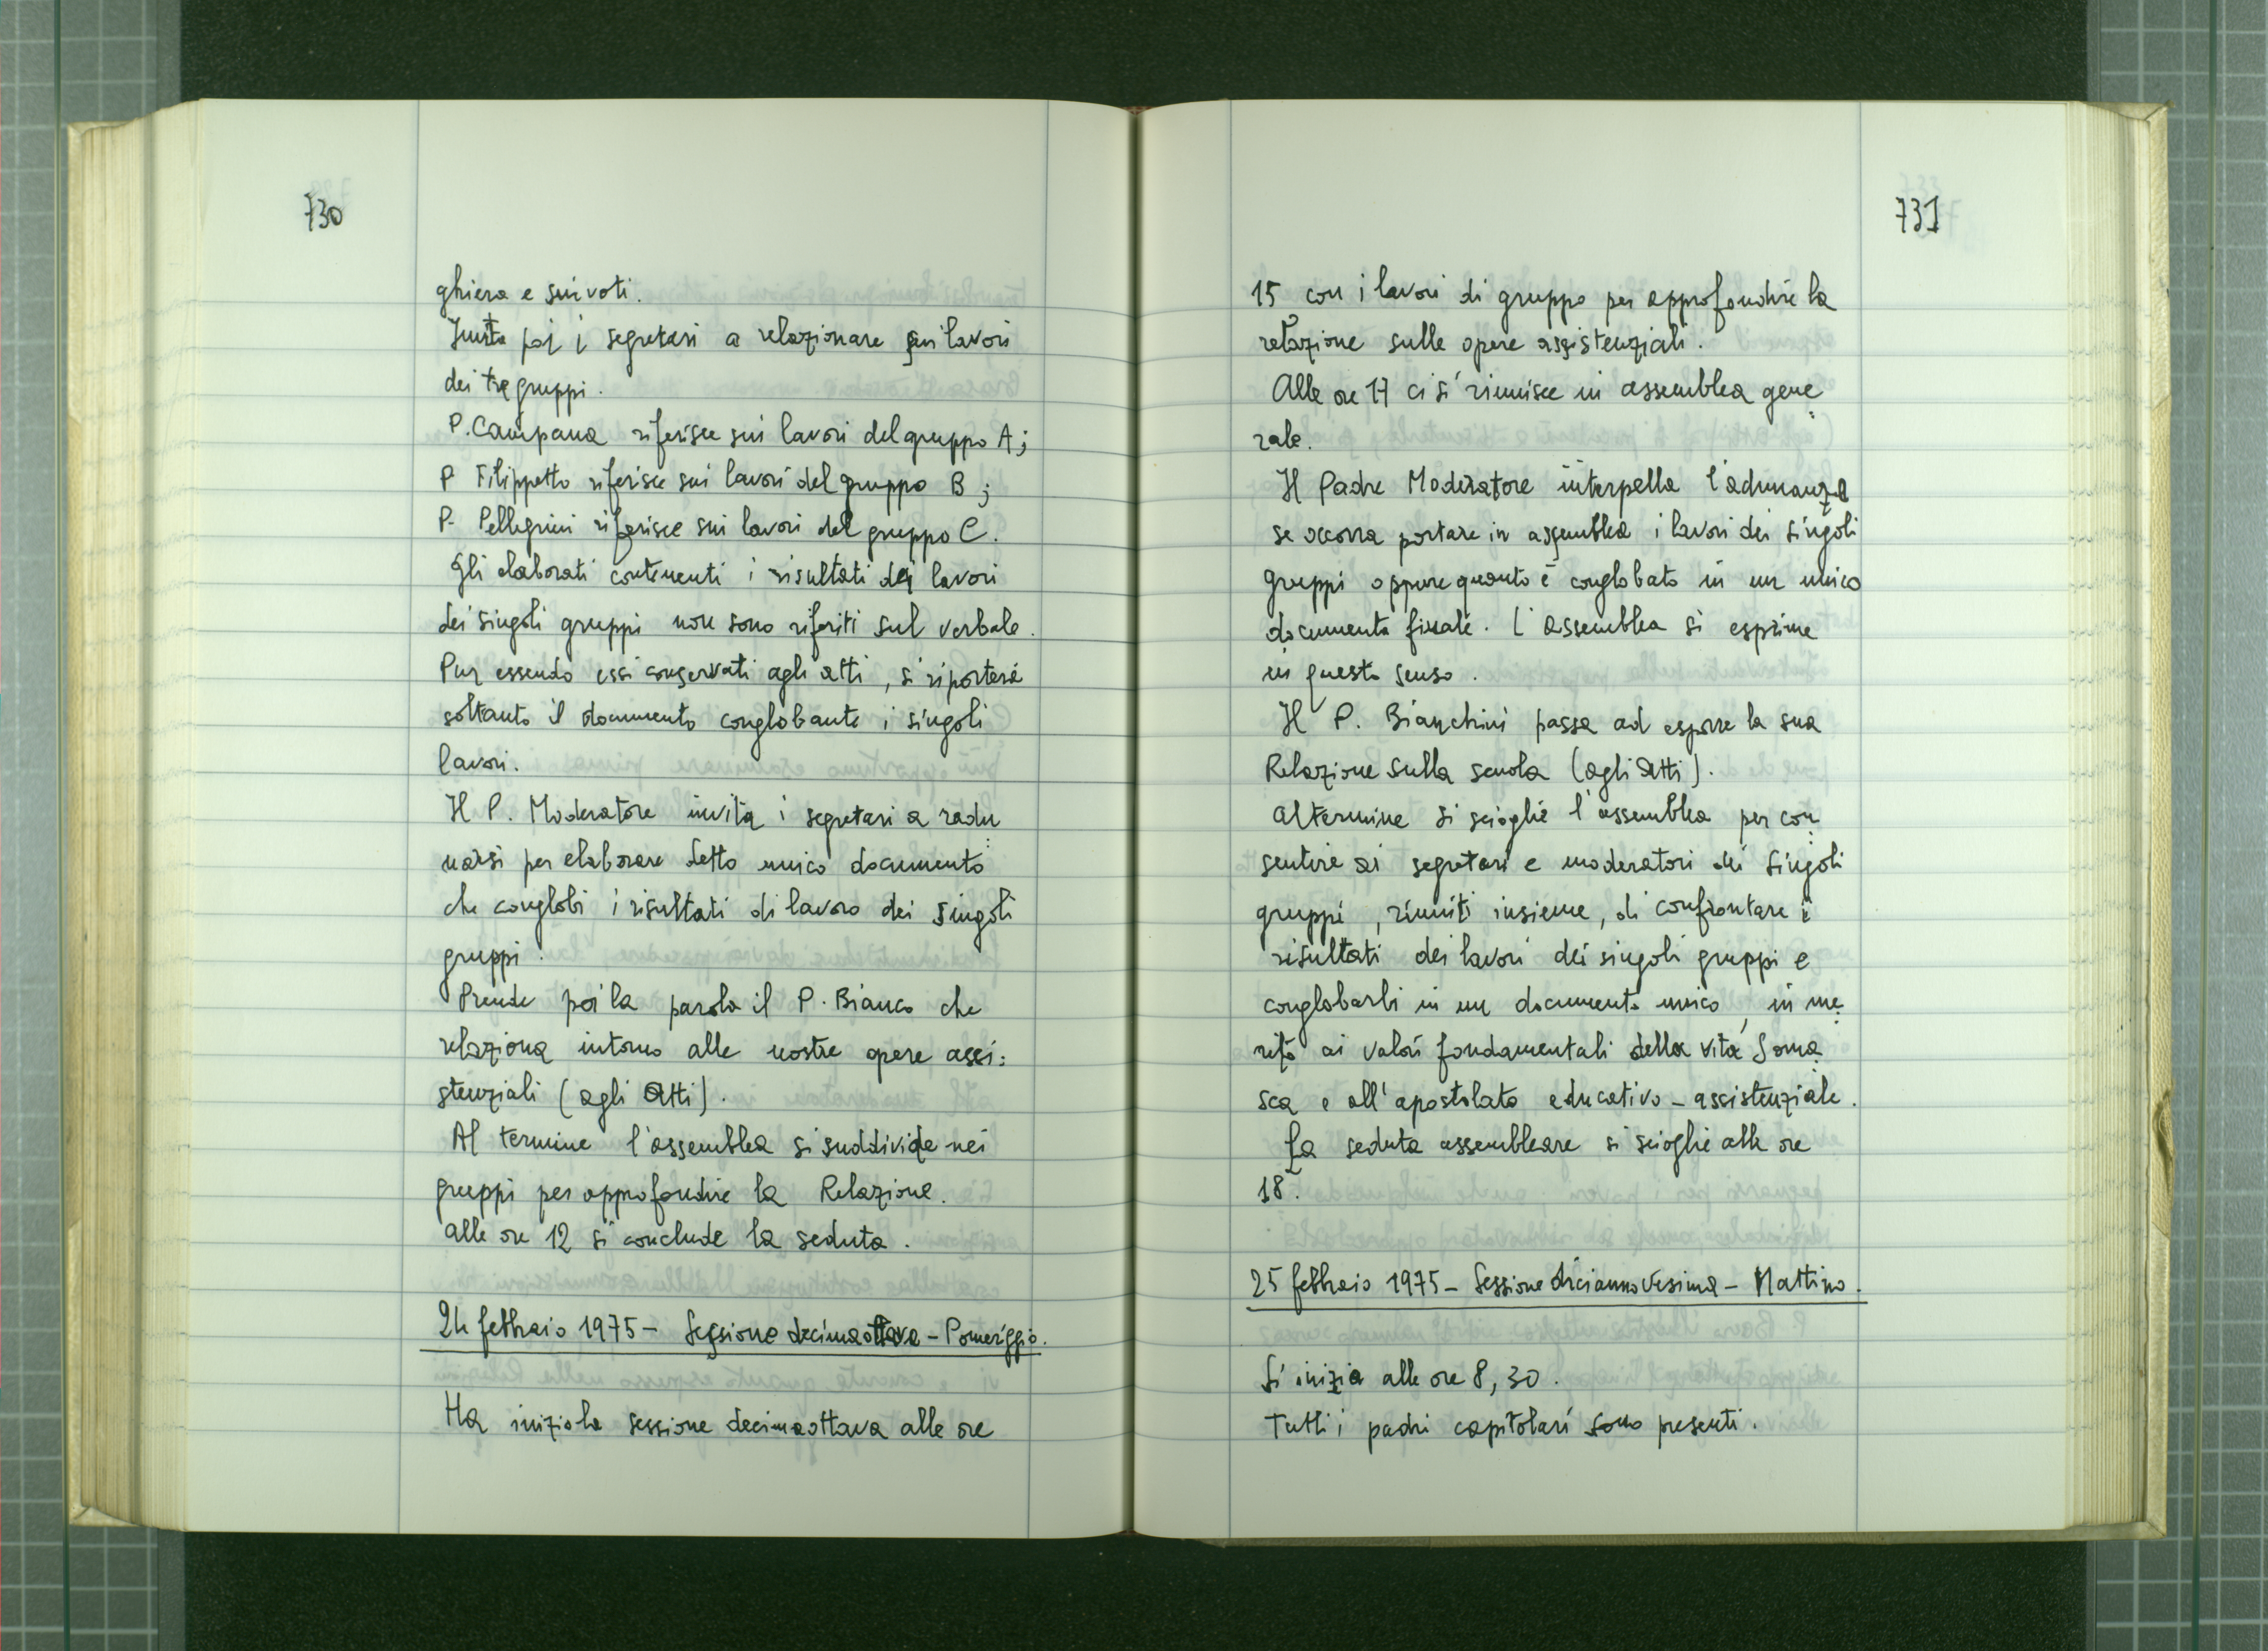 730
ghiera e sui voti.
Invita poi i segretari a relazionare sui lavori
dei tre gruppi.
P. Campana riferisce sui lavori del gruppo A;
P Filippetto riferisce sui lavori del gruppo B;
P- Pellegrini riferisce sui lavori del gruppo C.
Gli elaborati contenenti i risultati dei lavori
dei singoli gruppi non sono riferiti sul verbale.
Pur essendo essi conservati agli atti, si riporterà
soltanto il documento conglobante i singoli
lavori.
Il P. Moderatore invita i segretari a radu
narsi per elaborare detto unico documento
che conglobi i risultati di lavoro dei singoli
gruppi.
Prende poi la parola il P. Bianco che
relaziona intorno alle nostre opere assi:
stenziali (agli Atti).
Al termine l'assemblea si suddivide nei
gruppi per approfondire la Relazione.
Alle ore 12 si conclude la seduta.
24 febbraio 1975 - Sessione decimaottava - Pomeriggio.
Ha inizio la sessione decimaottava alle ore
731
15 con i lavori di gruppo per approfondire la
relazione sulle opere assistenziali.
Alle ore 17 ci si riunisce in assemblea gene
rale.
Il Padre Moderatore interpella l'adunanza
se occorra portare in assemblea i lavori dei singoli
gruppi oppure quanto è conglobato in un unico
documento finale. L'assemblea si esprime
in questo senso.
Il P. Bianchini passa ad esporre la sua
Relazione sulla scuola (agli Atti).
Al termine si scioglie l'assemblea per con
sentire ai segretari e moderatori dei singoli
gruppi, riuniti insieme, di confrontare i
risultati dei lavori dei singoli gruppi e
conglobarli in un documento unico, in me
rito ai valori fondamentali della vita Soma
sca e all'apostolato educativo - assistenziale.
La seduta assembleare si scioglie alle ore
18.
25 febbraio 1975 - Sessione diciannovesima - Mattino.
Si inizia alle ore 8,30.
Tutti i padri capitolari sono presenti.